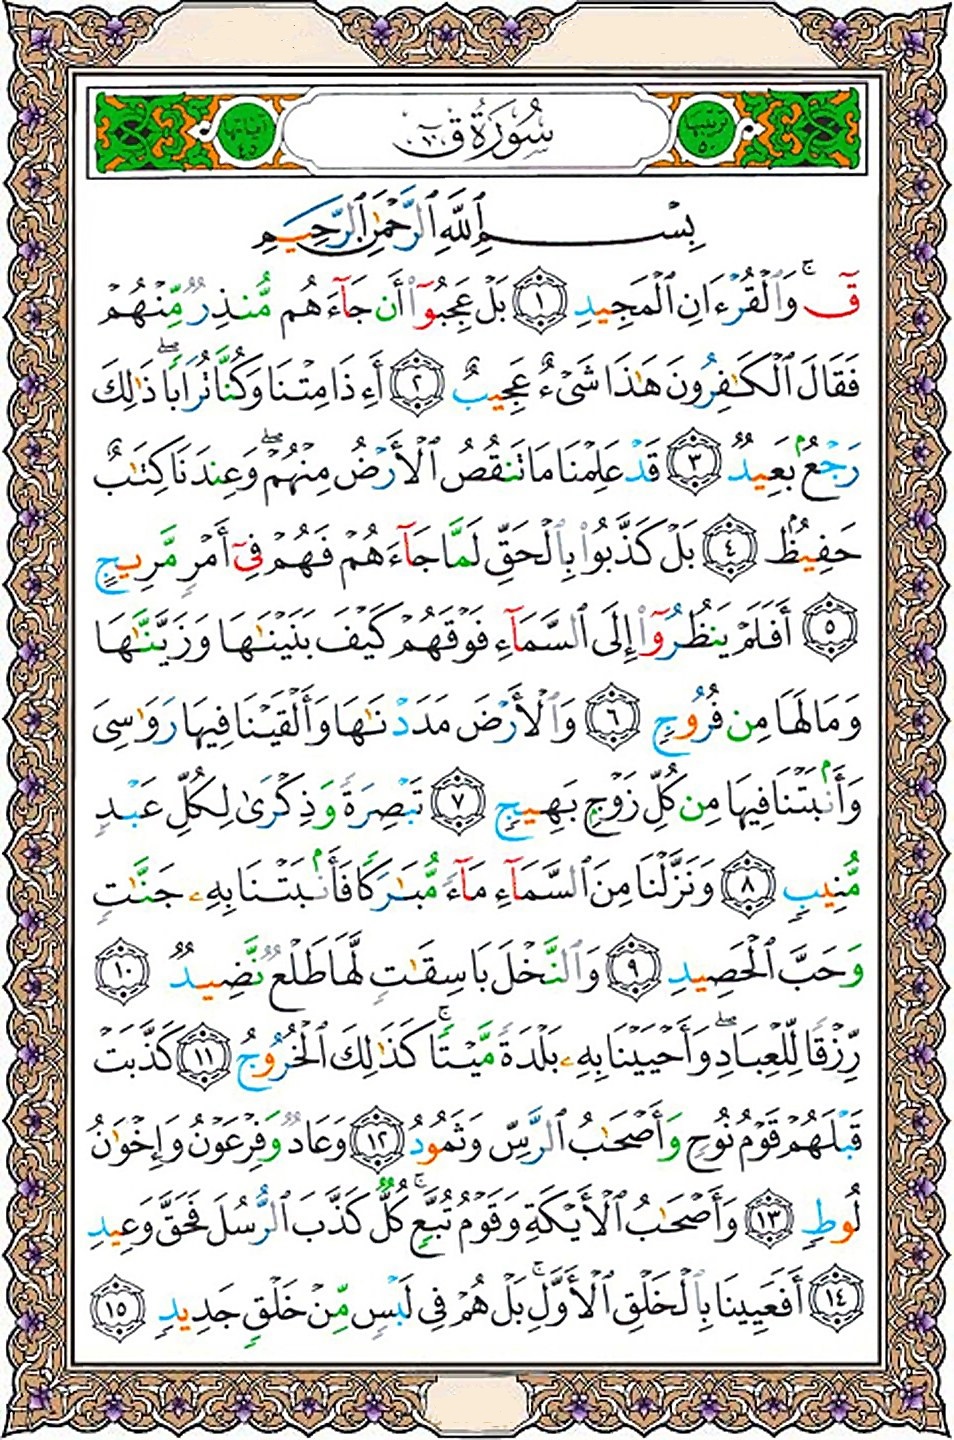 ترتيبها ٥٠
سُورَةُ قٓ
آياتها ٤٥
بِسْمِ ٱللَّهِ ٱلرَّحْمَٰنِ ٱلرَّحِيمِ
قٓۚ وَٱلْقُرْءَانِ ٱلْمَجِيدِ ١ بَلْ عَجِبُوٓا۟ أَن جَآءَهُم مُّنذِرٌ مِّنْهُمْ
فَقَالَ ٱلْكَٰفِرُونَ هَٰذَا شَىْءٌ عَجِيبٌ ٢ أَءِذَا مِتْنَا وَكُنَّا تُرَابًاۖ ذَٰلِكَ
رَجْعٌۢ بَعِيدٌ ٣ قَدْ عَلِمْنَا مَا تَنقُصُ ٱلْأَرْضُ مِنْهُمْۖ وَعِندَنَا كِتَٰبٌ
حَفِيظٌۢ ٤ بَلْ كَذَّبُوا۟ بِٱلْحَقِّ لَمَّا جَآءَهُمْ فَهُمْ فِىٓ أَمْرٍ مَّرِيجٍ
٥ أَفَلَمْ يَنظُرُوٓا۟ إِلَى ٱلسَّمَآءِ فَوْقَهُمْ كَيْفَ بَنَيْنَٰهَا وَزَيَّنَّٰهَا
وَمَا لَهَا مِن فُرُوجٍ ٦ وَٱلْأَرْضَ مَدَدْنَٰهَا وَأَلْقَيْنَا فِيهَا رَوَٰسِىَ
وَأَنۢبَتْنَا فِيهَا مِن كُلِّ زَوْجٍۭ بَهِيجٍ ٧ تَبْصِرَةً وَذِكْرَىٰ لِكُلِّ عَبْدٍ
مُّنِيبٍ ٨ وَنَزَّلْنَا مِنَ ٱلسَّمَآءِ مَآءً مُّبَٰرَكًا فَأَنۢبَتْنَا بِهِۦ جَنَّٰتٍ
وَحَبَّ ٱلْحَصِيدِ ٩ وَٱلنَّخْلَ بَاسِقَٰتٍ لَّهَا طَلْعٌ نَّضِيدٌ ١٠
رِّزْقًا لِّلْعِبَادِۖ وَأَحْيَيْنَا بِهِۦ بَلْدَةً مَّيْتًاۚ كَذَٰلِكَ ٱلْخُرُوجُ ١١ كَذَّبَتْ
قَبْلَهُمْ قَوْمُ نُوحٍ وَأَصْحَٰبُ ٱلرَّسِّ وَثَمُودُ ١٢ وَعَادٌ وَفِرْعَوْنُ وَإِخْوَٰنُ
لُوطٍ ١٣ وَأَصْحَٰبُ ٱلْأَيْكَةِ وَقَوْمُ تُبَّعٍۚ كُلٌّ كَذَّبَ ٱلرُّسُلَ فَحَقَّ وَعِيدِ
١٤ أَفَعَيِينَا بِٱلْخَلْقِ ٱلْأَوَّلِۚ بَلْ هُمْ فِى لَبْسٍ مِّنْ خَلْقٍ جَدِيدٍ ١٥